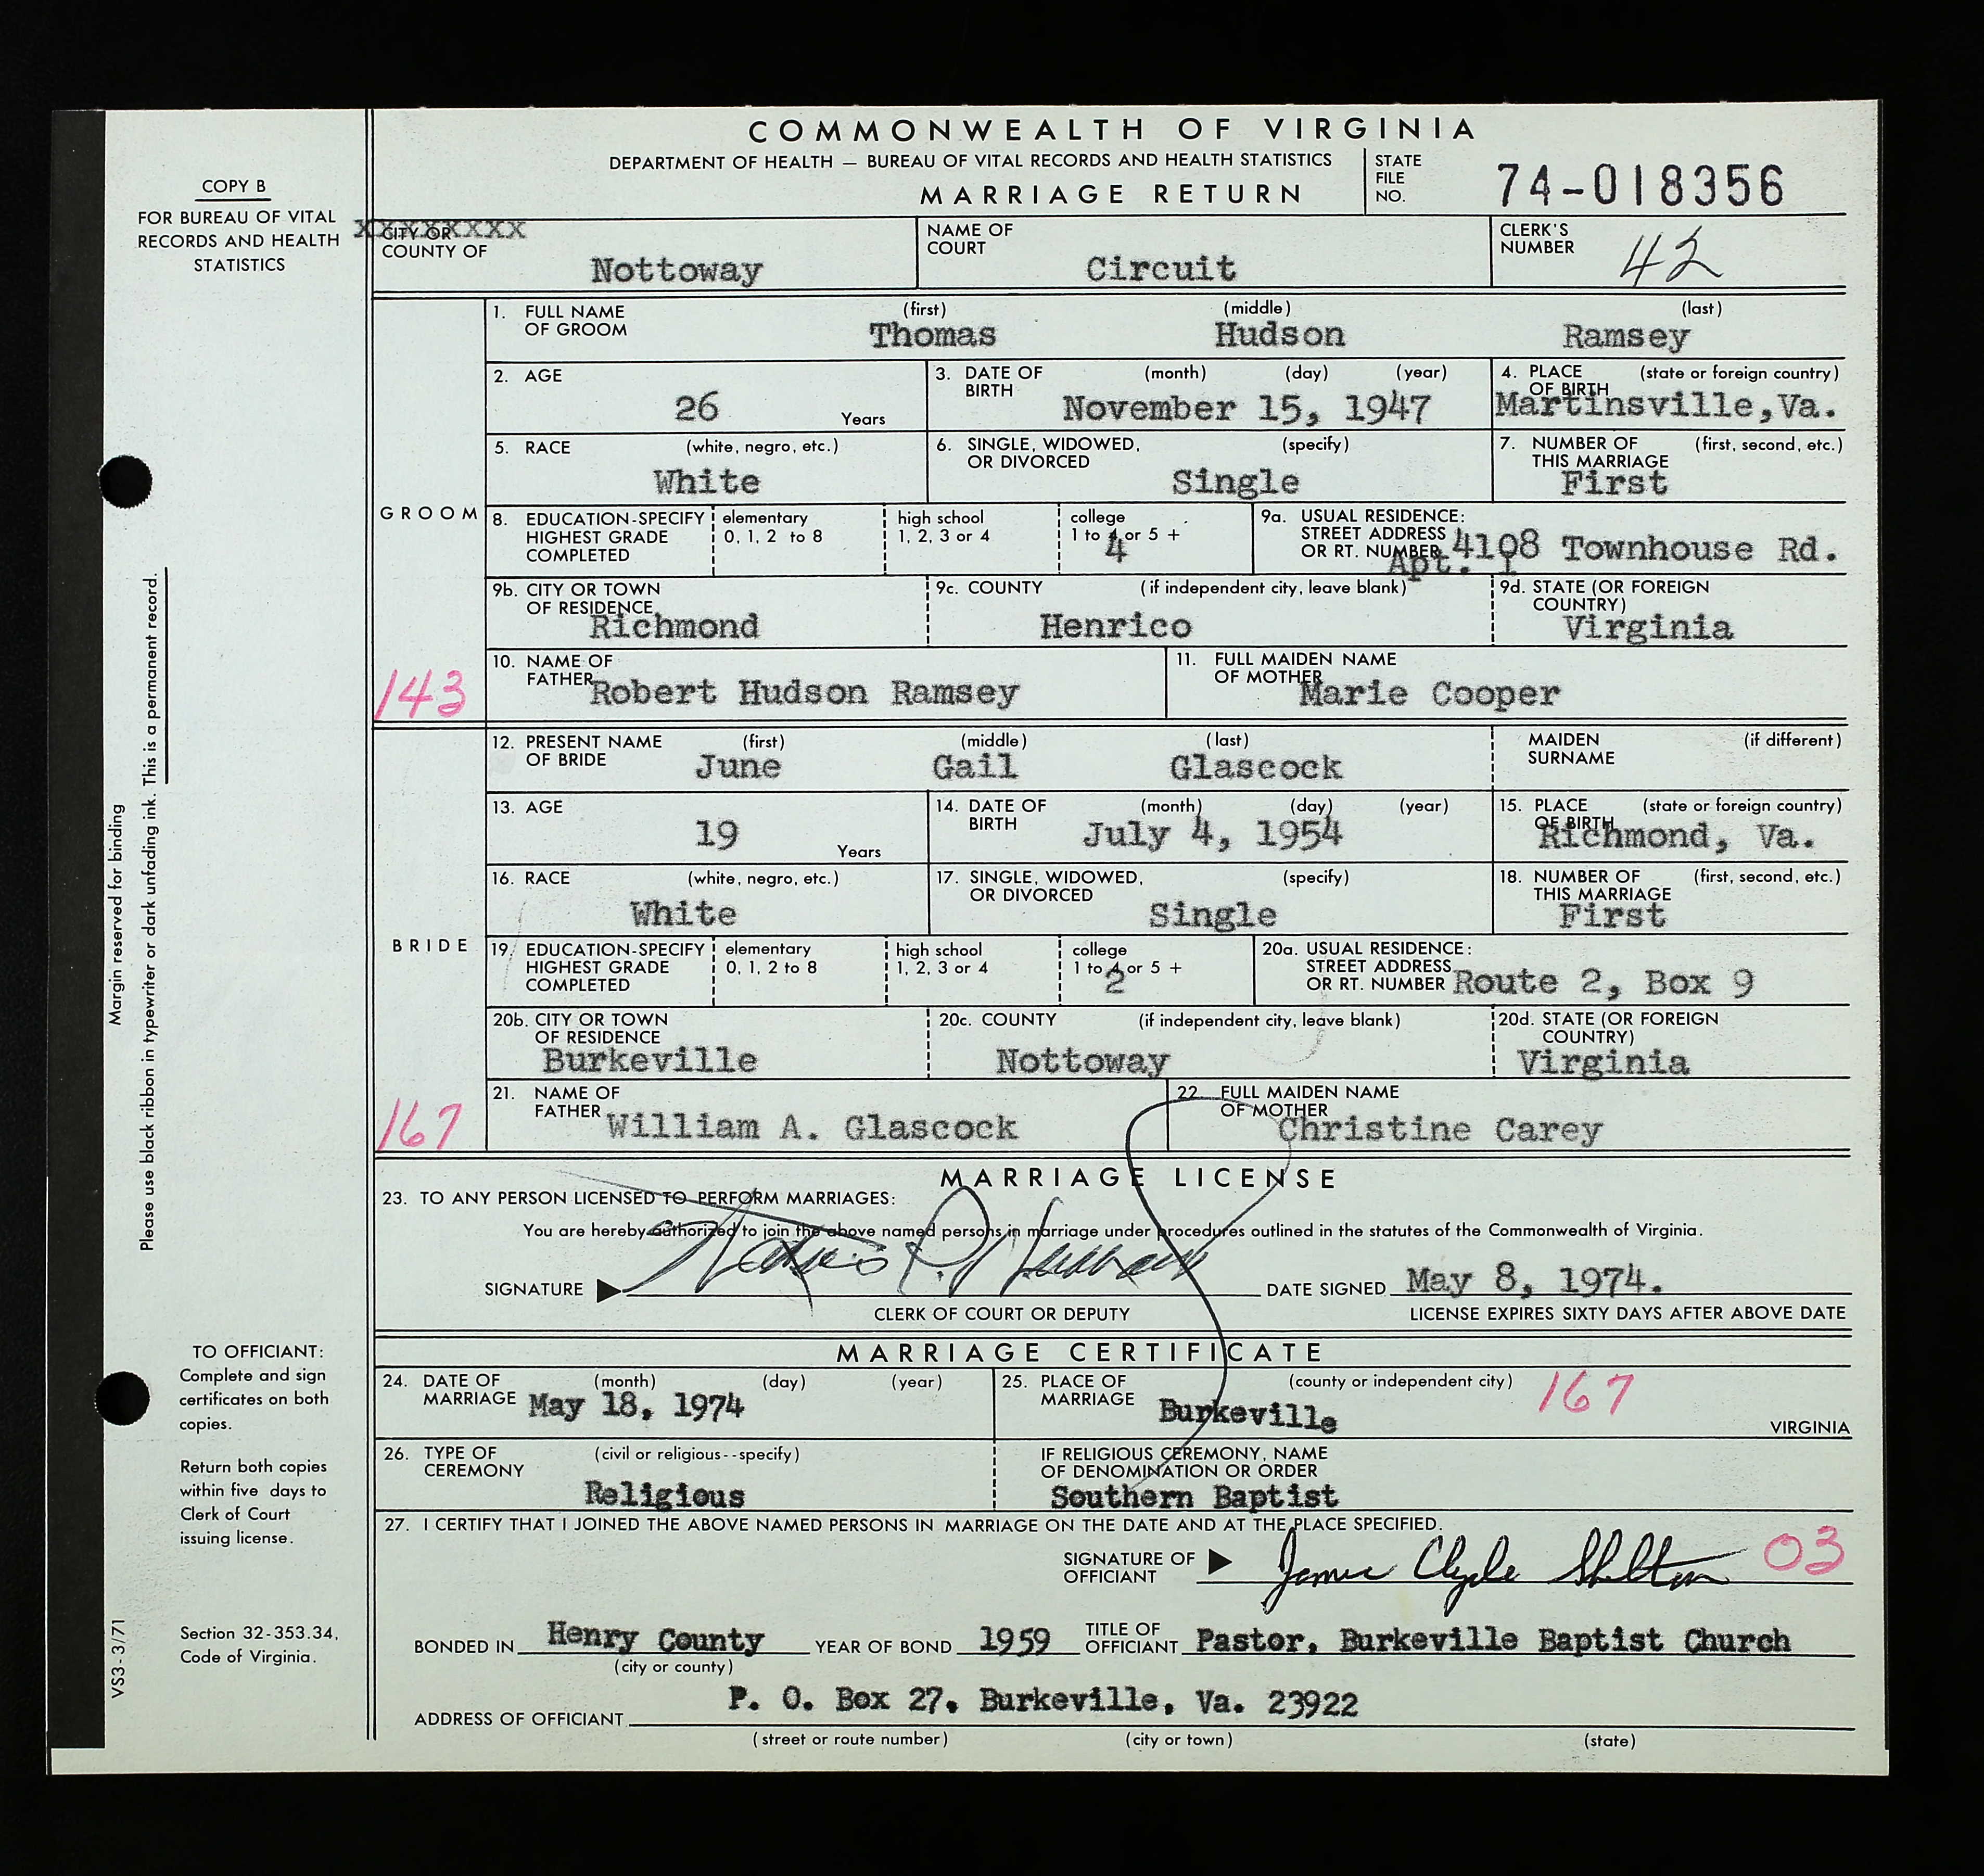 COMMONWEALTH OF VIRGINIA
DEPARTMENT OF HEALTH — BUREAU OF VITAL RECORDS AND HEALTH STATISTICS
MARRIAGE RETURN
STATE FILE NO. 74-018356
COPY B
FOR BUREAU OF VITAL
RECORDS AND HEALTH
STATISTICS
XXXXXXXXX
CITY OR
COUNTY OF Nottoway
NAME OF COURT Circuit
CLERK'S NUMBER 42
GROOM
1. FULL NAME OF GROOM (first) Thomas (middle) Hudson (last) Ramsey
2. AGE 26 Years
3. DATE OF BIRTH (month) (day) (year) November 15, 1947
4. PLACE OF BIRTH (state or foreign country) Martinsville,Va.
5. RACE (white, negro, etc.) White
6. SINGLE, WIDOWED, OR DIVORCED (specify) Single
7. NUMBER OF THIS MARRIAGE (first, second, etc.) First
8. EDUCATION-SPECIFY HIGHEST GRADE COMPLETED elementary 0, 1, 2 to 8 high school 1, 2, 3 or 4 college 1 to 4 or 5 + 4
9a. USUAL RESIDENCE: STREET ADDRESS OR RT. NUMBER 4108 Townhouse Rd.
Apt. 1
9b. CITY OR TOWN OF RESIDENCE Richmond
9c. COUNTY (if independent city, leave blank) Henrico
9d. STATE (OR FOREIGN COUNTRY) Virginia
143
10. NAME OF FATHER Robert Hudson Ramsey
11. FULL MAIDEN NAME OF MOTHER Marie Cooper
BRIDE
12. PRESENT NAME OF BRIDE (first) June (middle) Gail (last) Glascock
MAIDEN SURNAME (if different)
13. AGE 19 Years
14. DATE OF BIRTH (month) (day) (year) July 4, 1954
15. PLACE OF BIRTH (state or foreign country) Richmond, Va.
16. RACE (white, negro, etc.) White
17. SINGLE, WIDOWED, OR DIVORCED (specify) Single
18. NUMBER OF THIS MARRIAGE (first, second, etc.) First
19. EDUCATION-SPECIFY HIGHEST GRADE COMPLETED elementary 0, 1, 2 to 8 high school 1, 2, 3 or 4 college 1 to 4 or 5 + 2
20a. USUAL RESIDENCE: STREET ADDRESS OR RT. NUMBER Route 2, Box 9
20b. CITY OR TOWN OF RESIDENCE Burkeville
20c. COUNTY (if independent city, leave blank) Nottoway
20d. STATE (OR FOREIGN COUNTRY) Virginia
167
21. NAME OF FATHER William A. Glascock
22. FULL MAIDEN NAME OF MOTHER Christine Carey
MARRIAGE LICENSE
23. TO ANY PERSON LICENSED TO PERFORM MARRIAGES:
You are hereby authorized to join the above named persons in marriage under procedures outlined in the statutes of the Commonwealth of Virginia.
SIGNATURE
DATE SIGNED May 8, 1974.
CLERK OF COURT OR DEPUTY
LICENSE EXPIRES SIXTY DAYS AFTER ABOVE DATE
MARRIAGE CERTIFICATE
24. DATE OF MARRIAGE (month) (day) (year) May 18, 1974
25. PLACE OF MARRIAGE (county or independent city) Burkeville 167 VIRGINIA
26. TYPE OF CEREMONY (civil or religious--specify) Religious
IF RELIGIOUS CEREMONY, NAME OF DENOMINATION OR ORDER Southern Baptist
27. I CERTIFY THAT I JOINED THE ABOVE NAMED PERSONS IN MARRIAGE ON THE DATE AND AT THE PLACE SPECIFIED.
SIGNATURE OF OFFICIANT James Clyde Shelton 03
BONDED IN Henry County YEAR OF BOND 1959 TITLE OF OFFICIANT Pastor, Burkeville Baptist Church
(city or county)
P. O. Box 27, Burkeville, Va. 23922
ADDRESS OF OFFICIANT
(street or route number) (city or town) (state)
Margin reserved for binding
Please use black ribbon in typewriter or dark unfading ink. This is a permanent record.
TO OFFICIANT:
Complete and sign
certificates on both
copies.
Return both copies
within five days to
Clerk of Court
issuing license.
Section 32-353.34,
Code of Virginia.
VS3-3/71